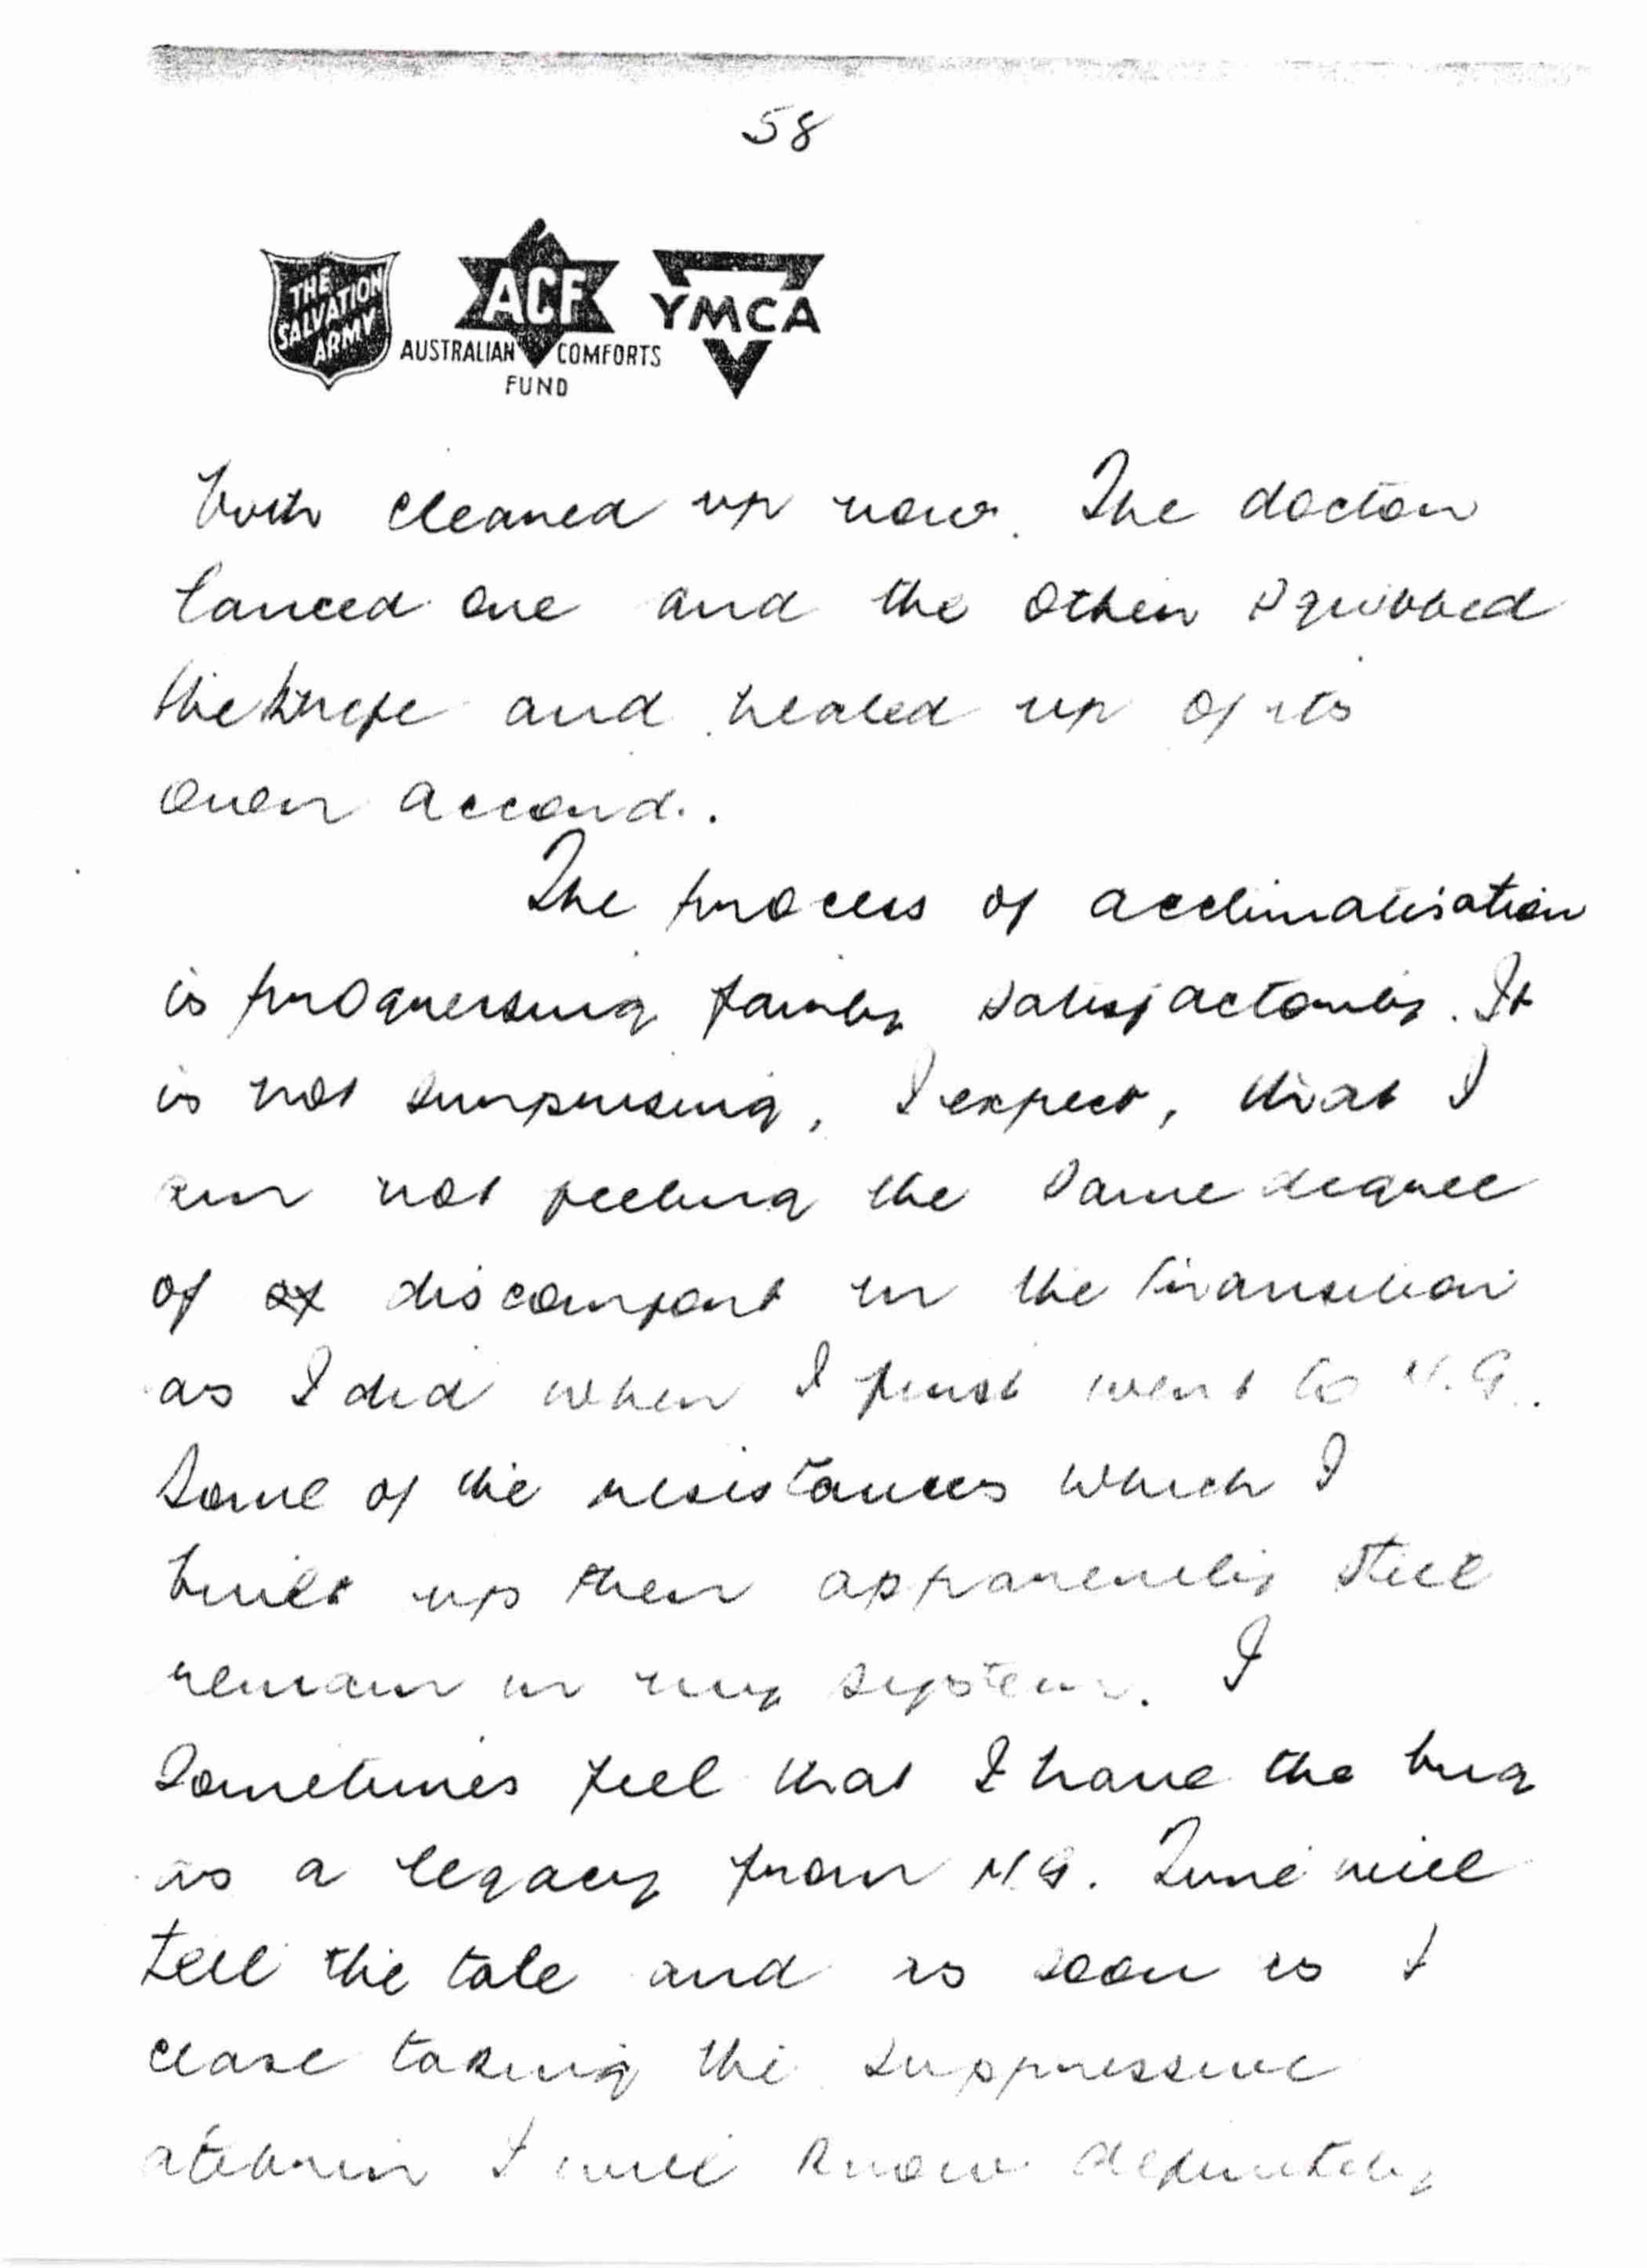 58
THE SALVATION ARMY
ACF
AUSTRALIAN COMFORTS FUND
YMCA
both cleaned up now. The doctor
lanced one and the other squibbed
the knife and healed up of its
own accord..
The process of acclimatisation
is progressing fairly satisfactorily. It
is not surprising, I expect, that I
am not feeling the same degree
of of discomfort in the transition
as I did when I first went to N.G..
Some of the resistances which I
built up then apparently still
remain in my system. I
sometimes feel that I have the bug
as a legacy from N.G. Time will
tell the tale and as soon as I
cease taking the suppressive
atebrin I will know definitely